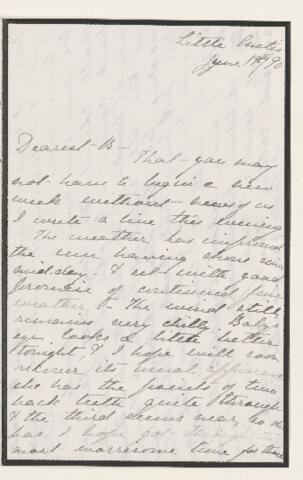 Little Curtis
June 19/90
Dearest B - That you may
not have to begin a new
week without news of us
I write a line this evening
The weather has improved
the sun having shone since
midday. & set with good
promise of continued fine
weather & The wind still
remains very chilly. Baby's
eye looks a little better
tonight. & I hope will soon
recover its usual appearance
she has the points of two
back teeth quite through
& the third seems near, so she
has I hope got through the
most worrisome time for these